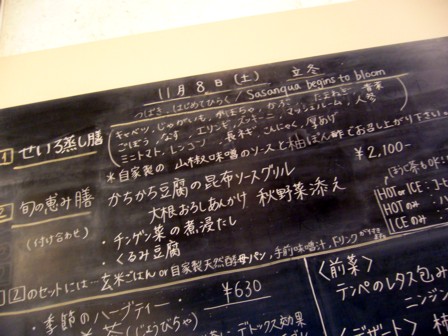 11月8日(土) 立冬
つばき はじめてひらく / Sasanqua begins to bloom
1 せいろ蒸し膳
キャベツ、じゃがいも、かぼちゃ、かぶ、たまねぎ、青菜
ごぼう、なす、エリンギ、ズッキーニ、マッシュルーム、人参
ミニトマト、レンコン、長ネギ、こんにゃく、厚あげ
*自家製の 山椒味噌のソースと柚ぽん酢でお召し上がり下さい。
¥2,100-
2 旬の恵み膳
かちから豆腐の昆布ソースグリル
大根おろしあんかけ 秋野菜添え
(付け合せ)
・チンゲン菜の煮浸し
・くるみ豆腐
HOT or ICE:コ
HOT のみ:ハー
ICE のみ
1 2 のセットには…玄米ごはん or 自家製天然酵母パン、手前味噌汁、ドリンクが
¥630
季節のハーブティー・
茶 (じょうびちゃ)
デトックス効果
<前菜>
テンペのレタス包み
ニンジン